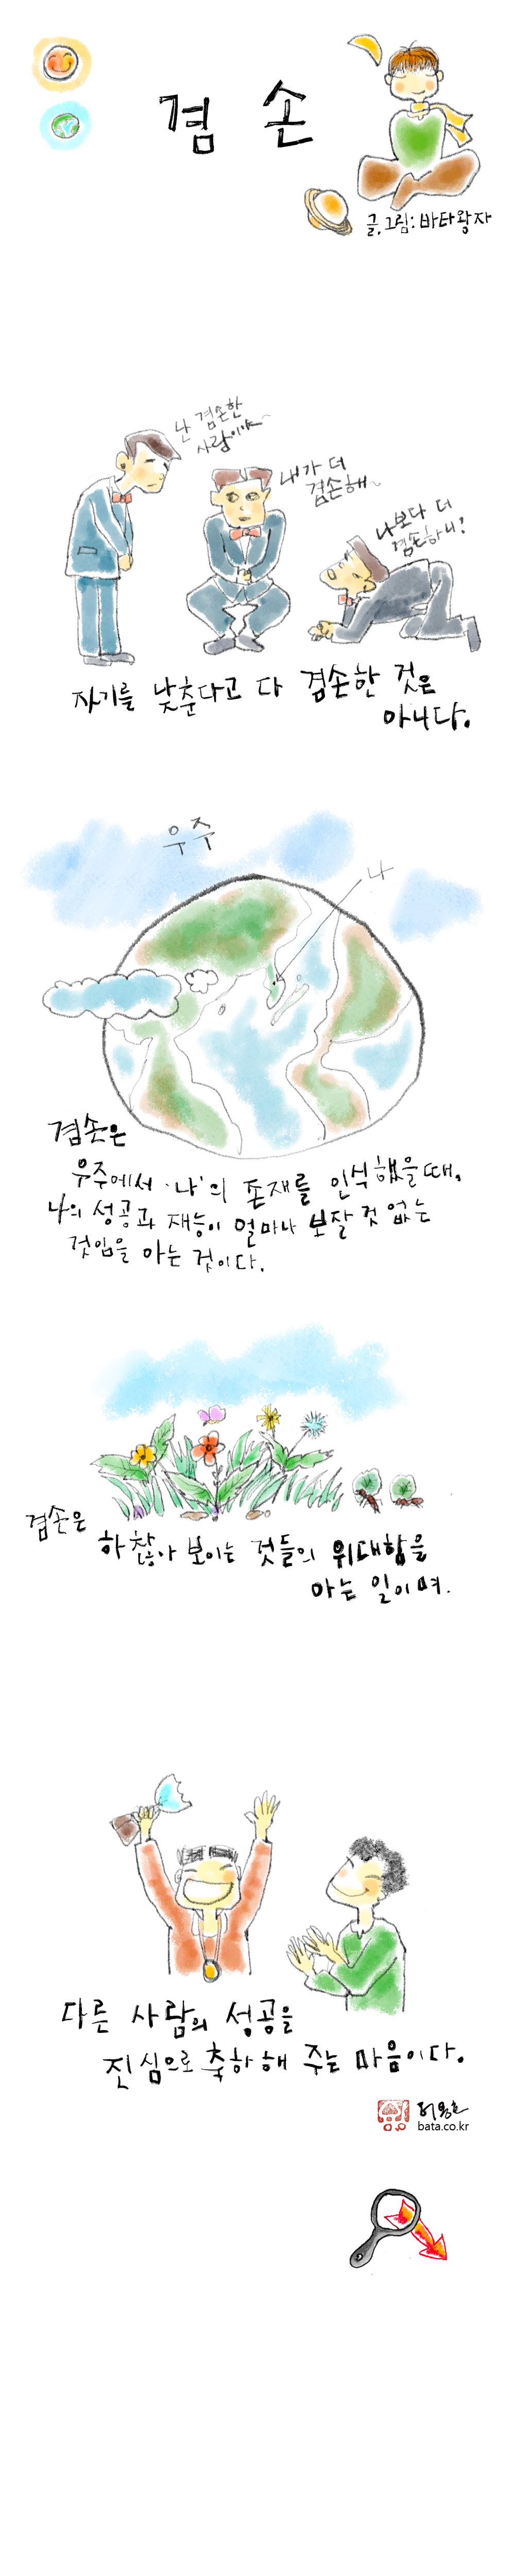 겸손
글,그림: 바타왕자
난 겸손한
사람이야~
내가 더
겸손해~
나보다 더
겸손하니?
자기를 낮춘다고 다 겸손한 것은
아니다.
우주
나
겸손은
우주에서 '나'의 존재를 인식했을때,
나의 성공과 재능이 얼마나 보잘 것 없는
것임을 아는 것이다.
겸손은
하찮아 보이는 것들의 위대함을
아는 일이며.
다른 사람의 성공을
진심으로 축하해 주는 마음이다.
bata.co.kr